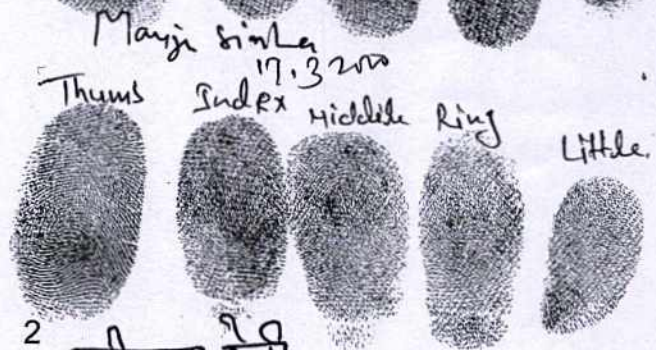 Sinha
17.3.2000
Thums Index Middile Ring Little.
2